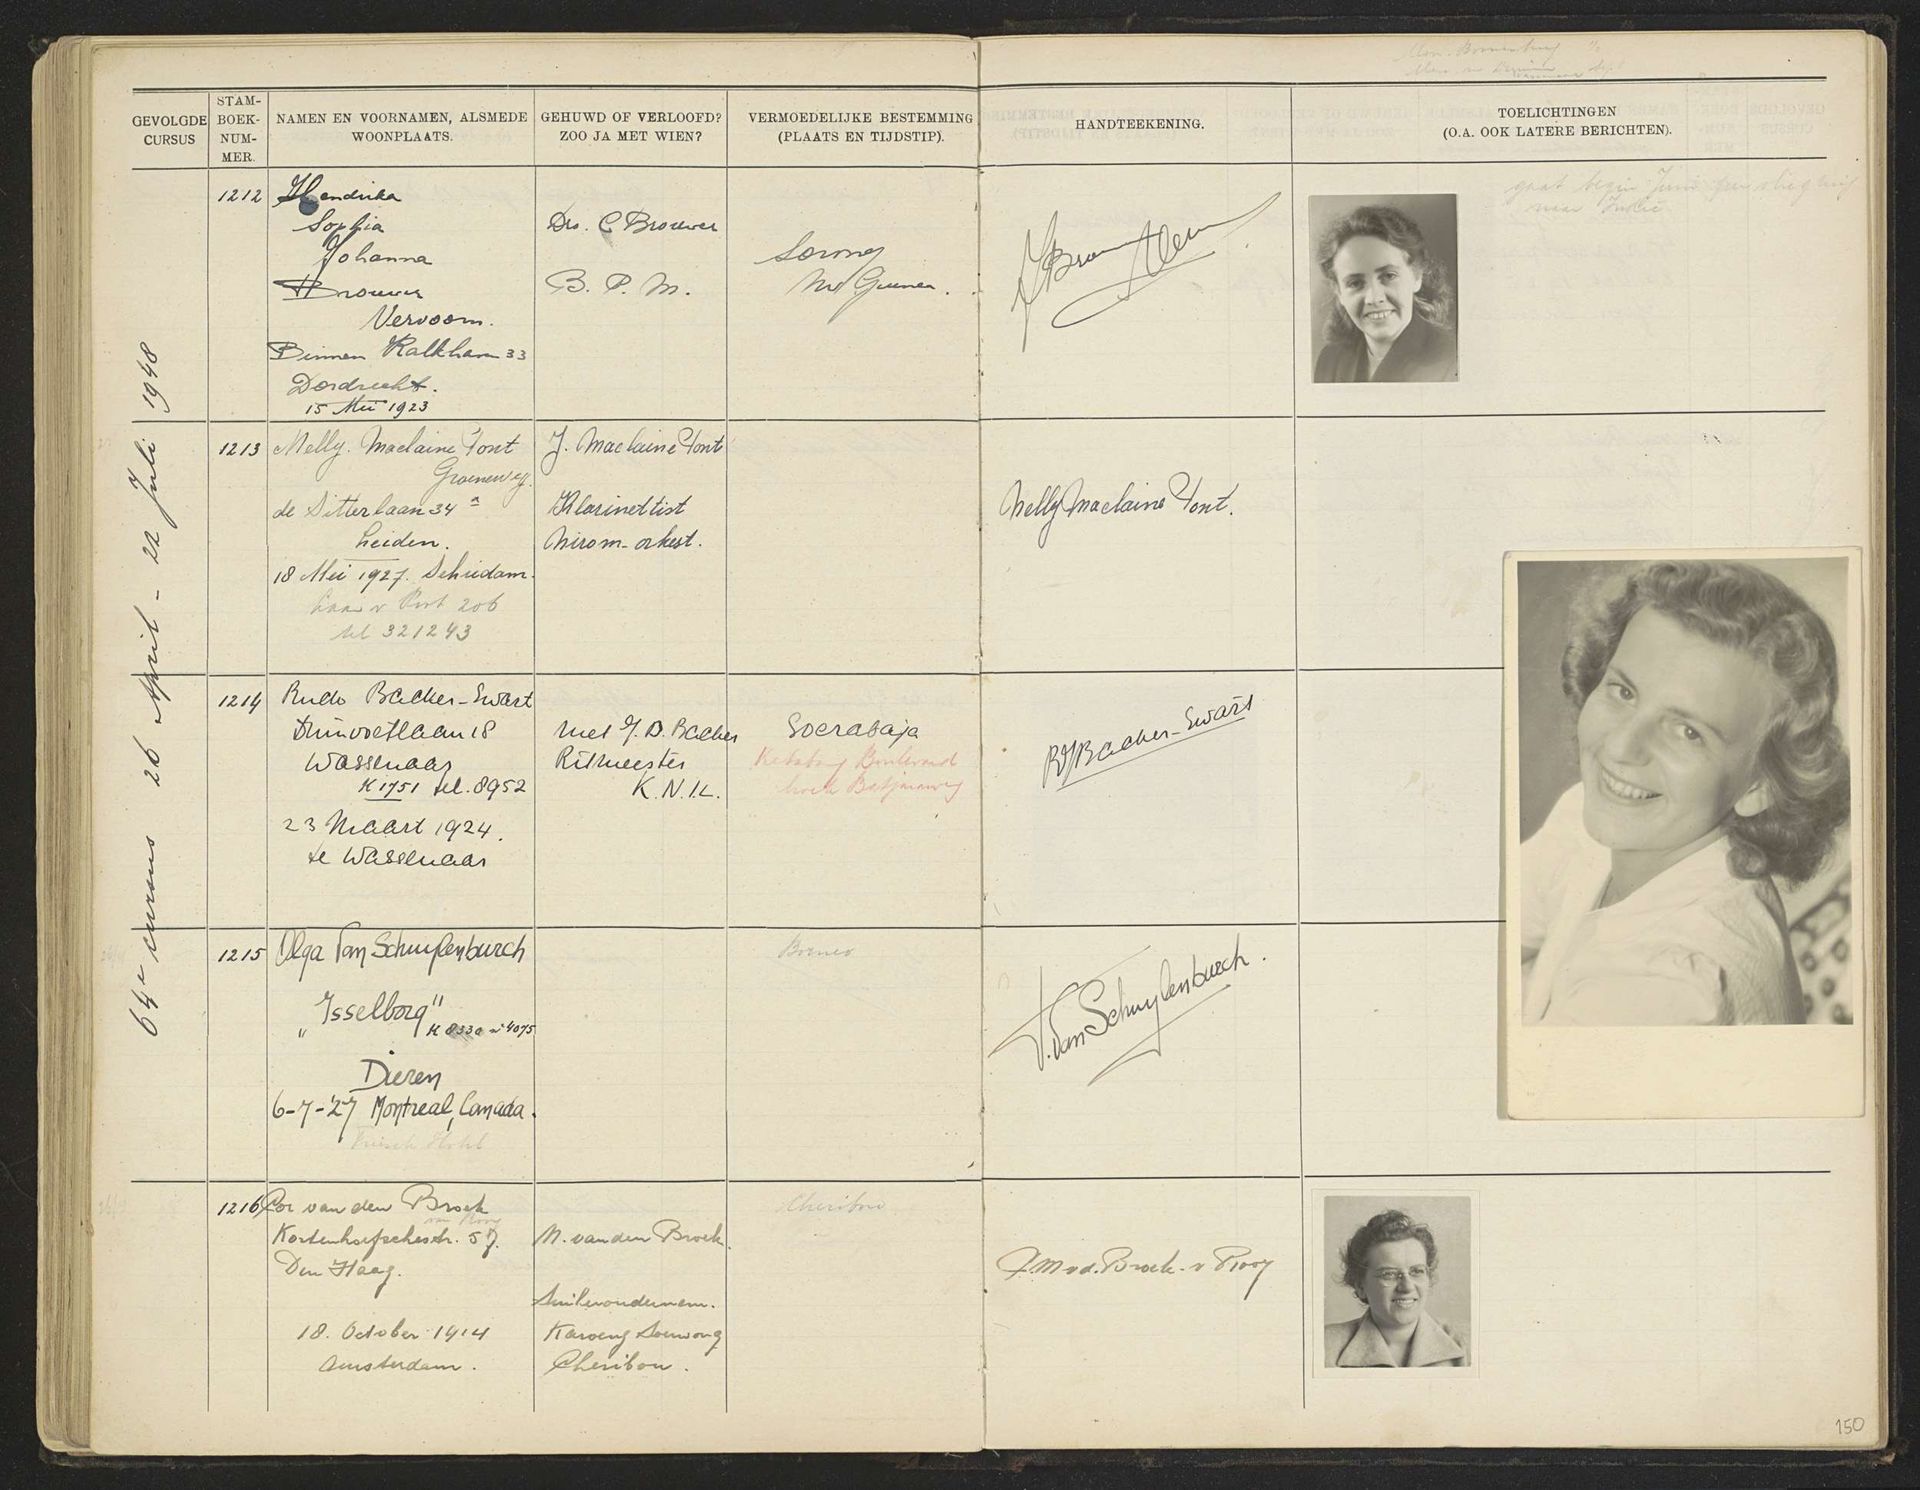 GEVOLGDE CURSUS
STAM-BOEK-NUM-MER.
NAMEN EN VOORNAMEN, ALSMEDE WOONPLAATS.
GEHUWD OF VERLOOFD? ZOO JA MET WIEN?
VERMOEDELIJKE BESTEMMING (PLAATS EN TIJDSTIP).
HANDTEEKENING.
TOELICHTINGEN (O.A. OOK LATERE BERICHTEN).
64e cursus 26 April - 22 Juli 1948
1212
Hendrika
Sophia
Johanna
Brouwer
Vervoorn.
Binnen Kalkhaven 33
Dordrecht.
15 Mei 1923
Drs. C Brouwer
B. P. M.
Sorong
Nw Guinea.
gaat begin Juni per vliegtuig
naar Indië
1213
Nelly Maclaine Pont
Groeneweg.
de Sitterlaan 34a
Leiden.
18 Mei 1927. Schiedam.
Laan v Poot 206
tel 321243
J. Maclaine Pont
Klarinettist
Nirom-orkest.
Nelly Maclaine Pont.
1214
Rudo Backer-Swart
Duinvoetlaan 18
Wassenaar
K 1751 tel. 8952
23 Maart 1924.
te Wassenaar
Met J. D. Backer
Ritmeester
K.N.I.L.
Soerabaja
Ketabang Boulevard
hoek
Backer-Swart
1215
Olga van Schuylenburch
"Isselborg"
K 8330 4075
Dieren
6-7-'27 Montreal, Canada.
Borneo
V. van Schuylenburch.
1216
Cor van den Broek
van Rooy
Kortenhoefschestr. 57.
Den Haag.
18. October 1914
Amsterdam.
M. van den Broek.
Suikerondernem.
Karoeng Soewoeng
Cheribon.
Cheribon
v.d. Broek - v Rooy
150